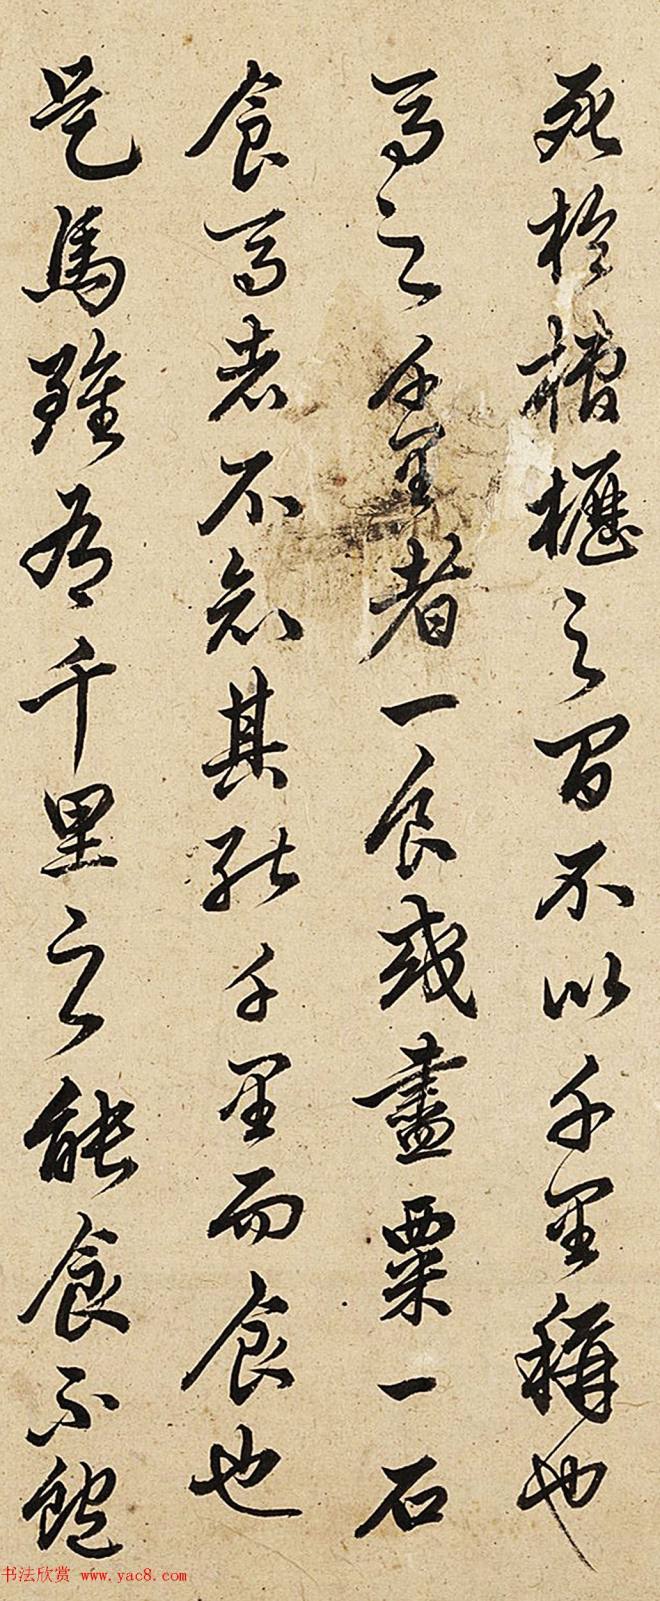 死於槽櫪之間不以千里稱也
馬之千里者一食或盡粟一石
食馬者不知其能千里而食也
是馬雖有千里之能食不飽
书法欣赏 www.yac8.com